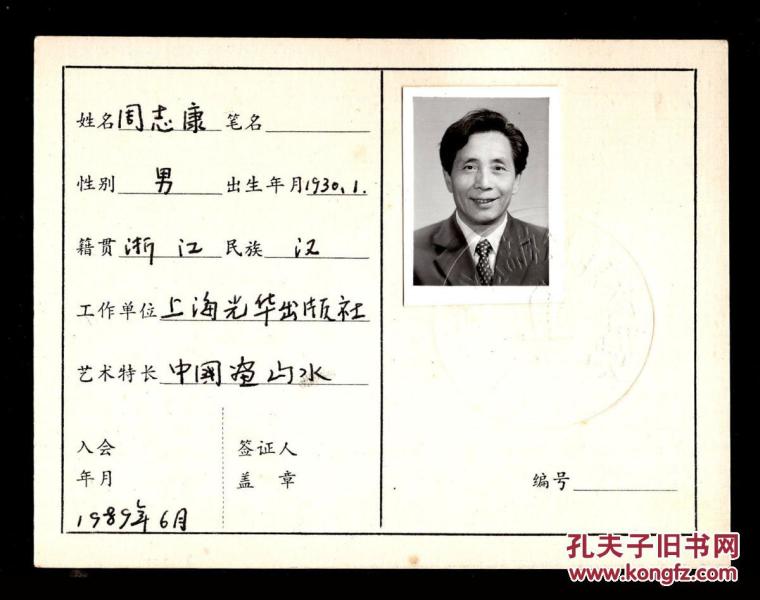 姓名 周志康 笔名
性别 男 出生年月 1930.1.
籍贯 浙江 民族 汉
工作单位 上海光华出版社
艺术特长 中国画山水
入会
年月
1989年6月
签证人
盖 章
编号
孔夫子旧书网
www.kongfz.com